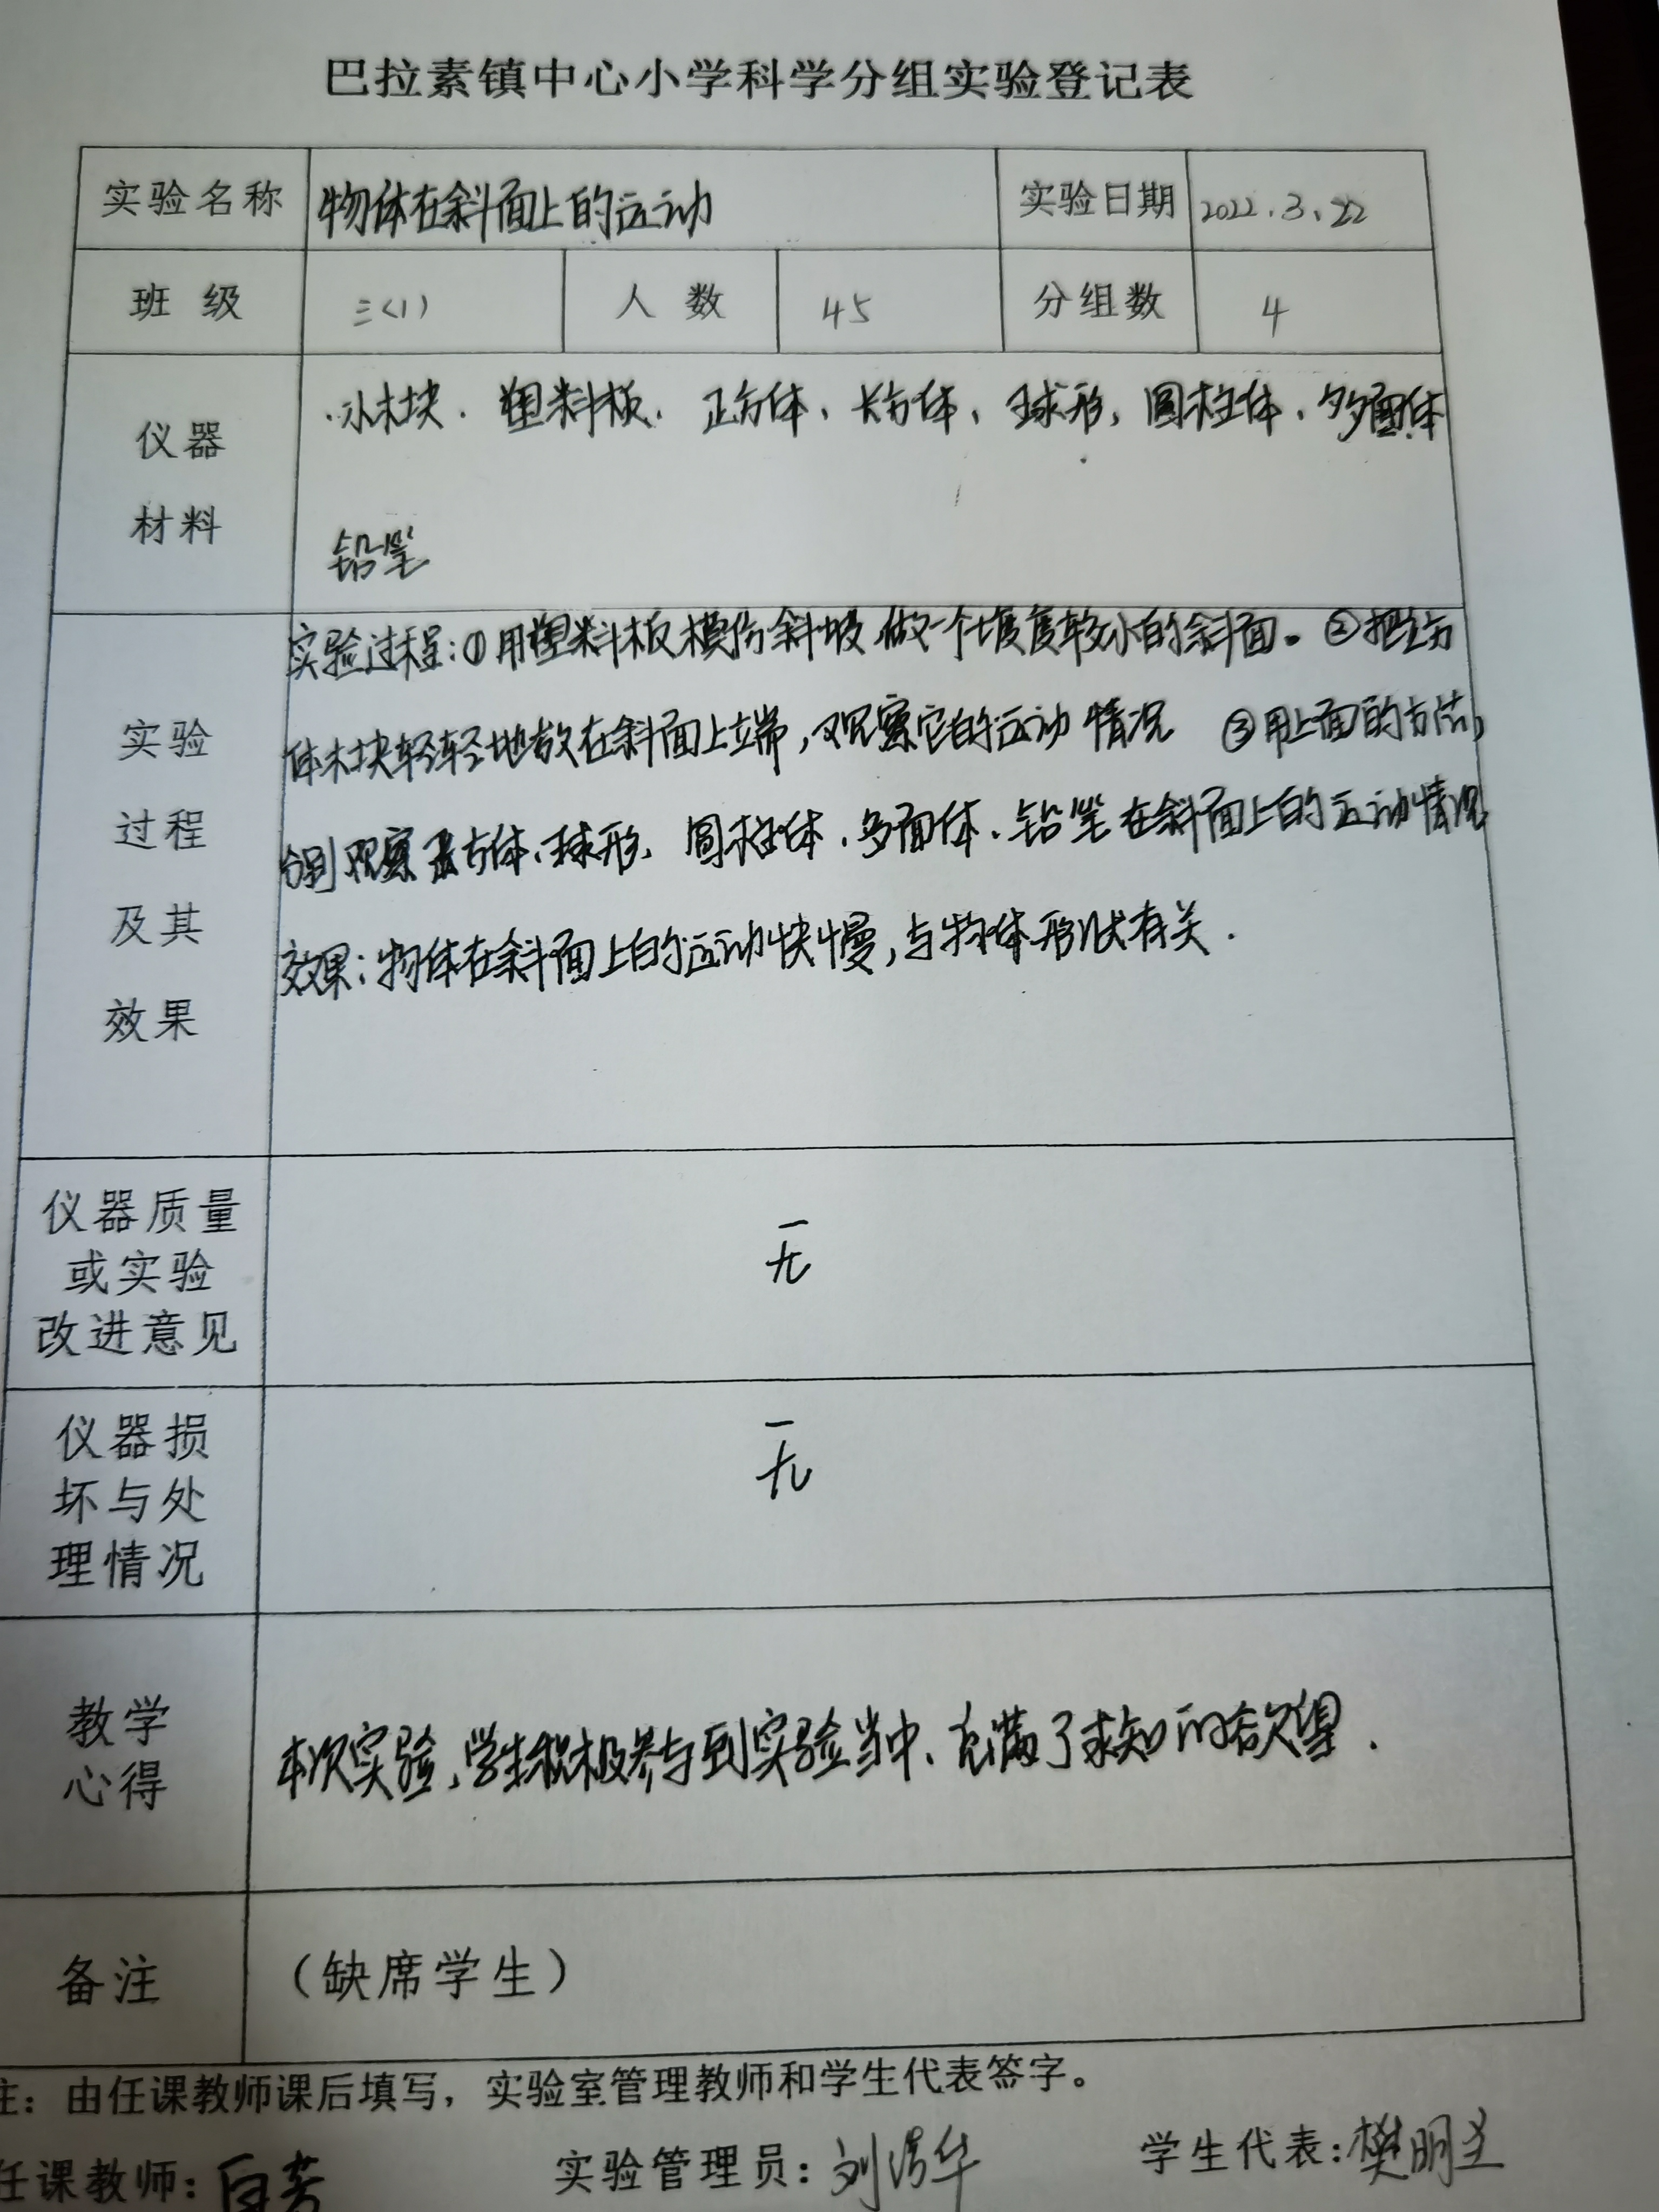 巴拉素镇中心小学科学分组实验登记表
实验名称 物体在斜面上的运动 实验日期 2022.3.22
班 级 三(1) 人 数 45 分组数 4
仪器
材料
小木块、塑料板、正方体、长方体、球形、圆柱体、多面体
铅笔
实验
过程
及其
效果
实验过程:①用塑料板模仿斜坡做一个坡度较小的斜面。②把正方
体木块轻轻地放在斜面上端,观察它的运动情况 ③用上面的方法,
分别观察长方体、球形、圆柱体、多面体、铅笔在斜面上的运动情况
效果:物体在斜面上的运动快慢,与物体形状有关.
仪器质量
或实验
改进意见
无
仪器损
坏与处
理情况
无
教学
心得
本次实验,学生积极参与到实验当中、充满了求知的欲望.
备注 (缺席学生)
注:由任课教师课后填写,实验室管理教师和学生代表签字。
任课教师:白芳 实验管理员:刘 华 学生代表:樊明